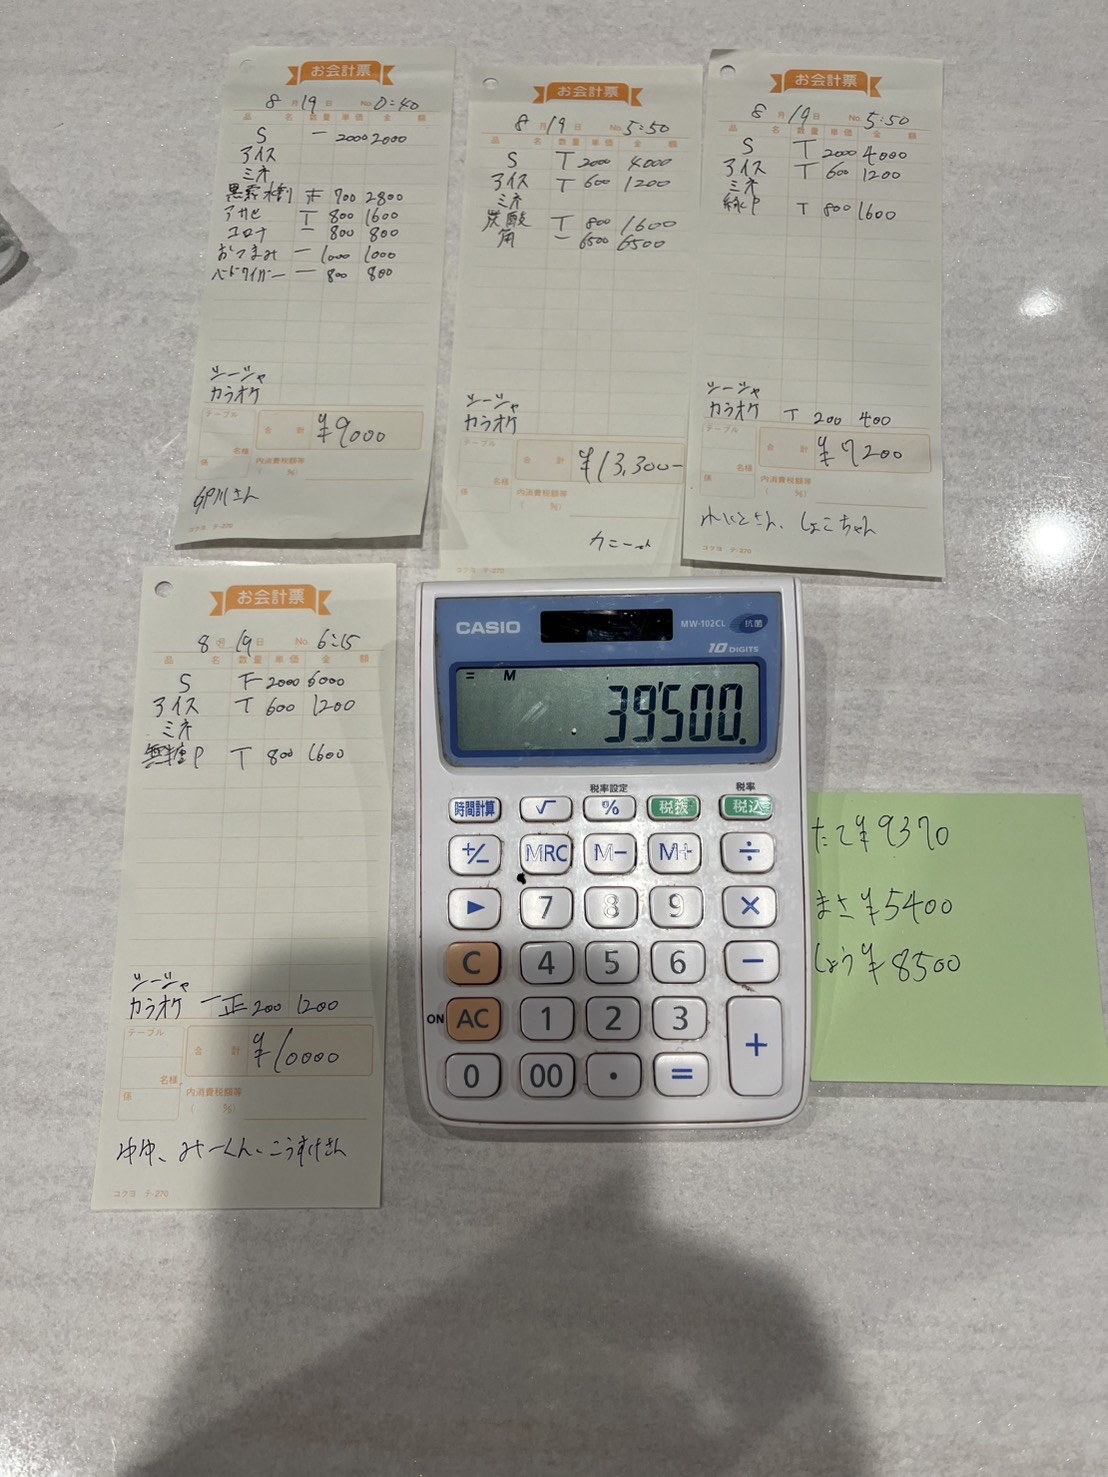 お会計票
8月19日 No. 0:40
品名 数量 単価 金額
S 一 2000 2000
アイス
ミネ
黒霧水割 700 2800
アサヒ T 800 1600
コロナ 一 800 800
おつまみ 一 1000 1000
バドワイザー 一 800 800
カラオケ
テーブル
合計 ¥9000
名様
係
内消費税額等
( %)
コクヨ テ-270
お会計票
8月19日 No. 5:50
品名 数量 単価 金額
S T 2000 4000
アイス T 600 1200
ミネ
炭酸 T 800 1600
角 一 6500 6500
カラオケ
テーブル
合計 ¥13,300-
名様
係
内消費税額等
( %)
コクヨ テ-270
お会計票
8月19日 No. 5:50
品名 数量 単価 金額
S T 2000 4000
アイス T 600 1200
ミネ
緑P T 800 1600
カラオケ T 200 400
テーブル
合計 ¥7200
名様
係
内消費税額等
( %)
しょこちゃん
コクヨ テ-270
お会計票
8月19日 No. 6:15
品名 数量 単価 金額
S 2000 6000
アイス T 600 1200
ミネ
無糖P T 800 1600
カラオケ 一正 200 1200
テーブル
合計 ¥10000
名様
係
内消費税額等
( %)
ゆゆ、みーくん、こうすけさん
コクヨ テ-270
CASIO
MW-102CL 抗菌
10 DIGITS
= M
39'500.
税率設定 税率
時間計算 √ % 税抜 税込
+/− MRC M− M+ ÷
▶ 7 8 9 ×
C 4 5 6 −
ON AC 1 2 3 +
0 00 • =
たて¥9370
まさ¥5400
しょう¥8500